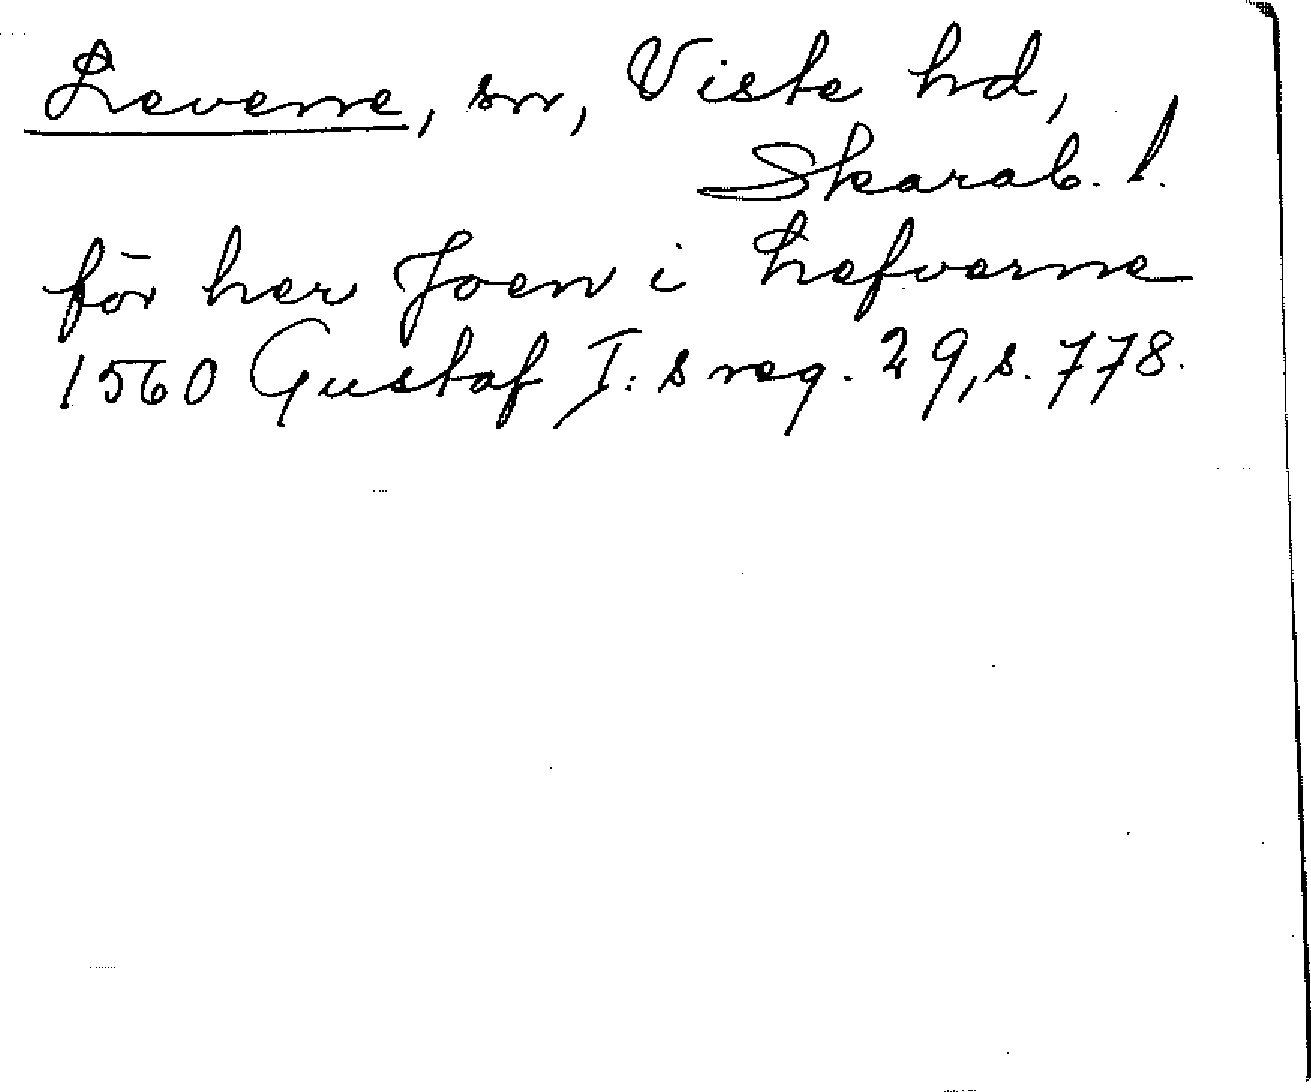 Levene, sn, Viste hd,
Skarab. l.
för her Joen i Lefverne
1560 Gustaf I:s reg. 29, s. 778.